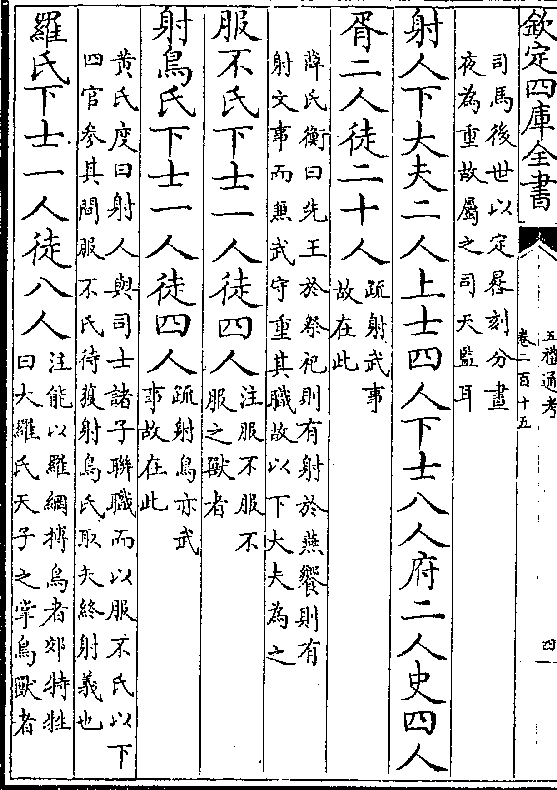 欽定四庫全書
五禮通考
卷二百十五
四
司馬後世以定晷刻分晝
夜為重故屬之司天監耳
射人下大夫二人上士四人下士八人府二人史四人
胥二人徒二十人
疏射武事
故在此
薛氏衡曰先王於祭祀則有射於燕饗則有
射文事而兼武守重其職故以下大夫為之
服不氏下士一人徒四人
注服不服不
服之獸者
射鳥氏下士一人徒四人
疏射鳥亦武
事故在此
黃氏度曰射人與司士諸子聯職而以服不氏以下
四官參其間服不氏待獲射鳥氏取矢終射義也
羅氏下士一人徒八人
注能以羅網搏鳥者郊特牲
曰大羅氏天子之掌鳥獸者